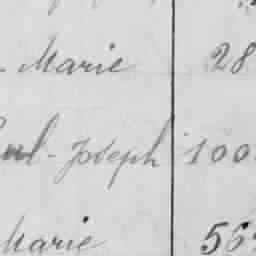 - Marie 28
Paul-Joseph 100
Marie 56